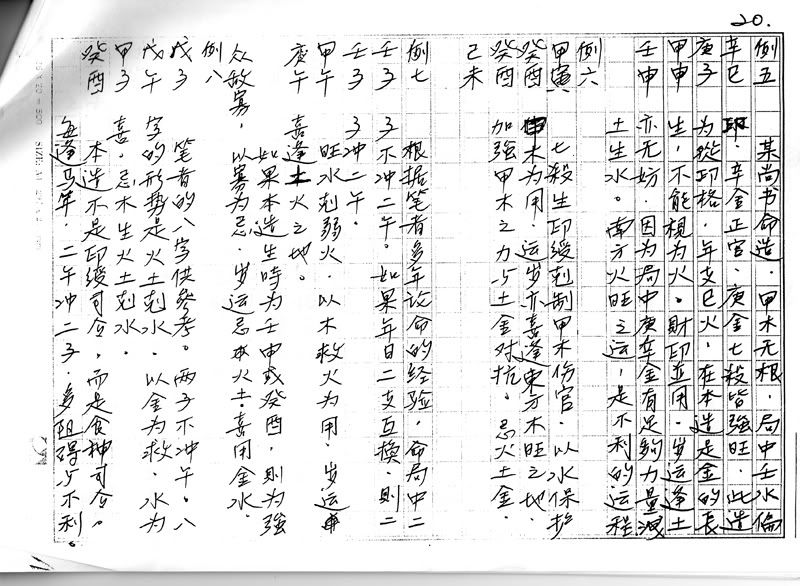 20.
例五　某尚书命造．甲木无根．局中壬水偏
辛巳　印．辛金正官．庚金七殺皆強旺．此造
庚子　为從印格．年支巳火．在本造是金的長
甲申　生，不能視为火。財印並用．岁运逢土
壬申　亦无妨．因为局中庚辛金有足夠力量洩
土生水。南方火旺之运，是不利的运程
例六
甲寅　七殺生印綬剋制甲木伤官．以水保护
癸酉　甲木为用．运岁亦喜逢東方木旺之地．
癸酉　加強甲木之力与土金对抗．忌火土金．
己未
例七　根据笔者多年论命的经验，命局中二
壬子　子不冲二午。如果年日二支互換．則二
壬子　子冲二午。
甲午　旺水剋弱火．以木救火为用．岁运
庚午　喜逢火之地。
如果本造生時为壬申或癸酉，則为強
众敌寡，以寡为忌．岁运忌木火土．喜用金水．
例八
戊子　笔者的八字供參考。两子不冲午。八
戊午　字的形勢是火土剋水．以金为救．水为
甲子　喜．忌木生火土剋水．
癸酉　本造不是印綬司令，而是食神司令。
每逢马年．二午冲二子．多阻碍与不利